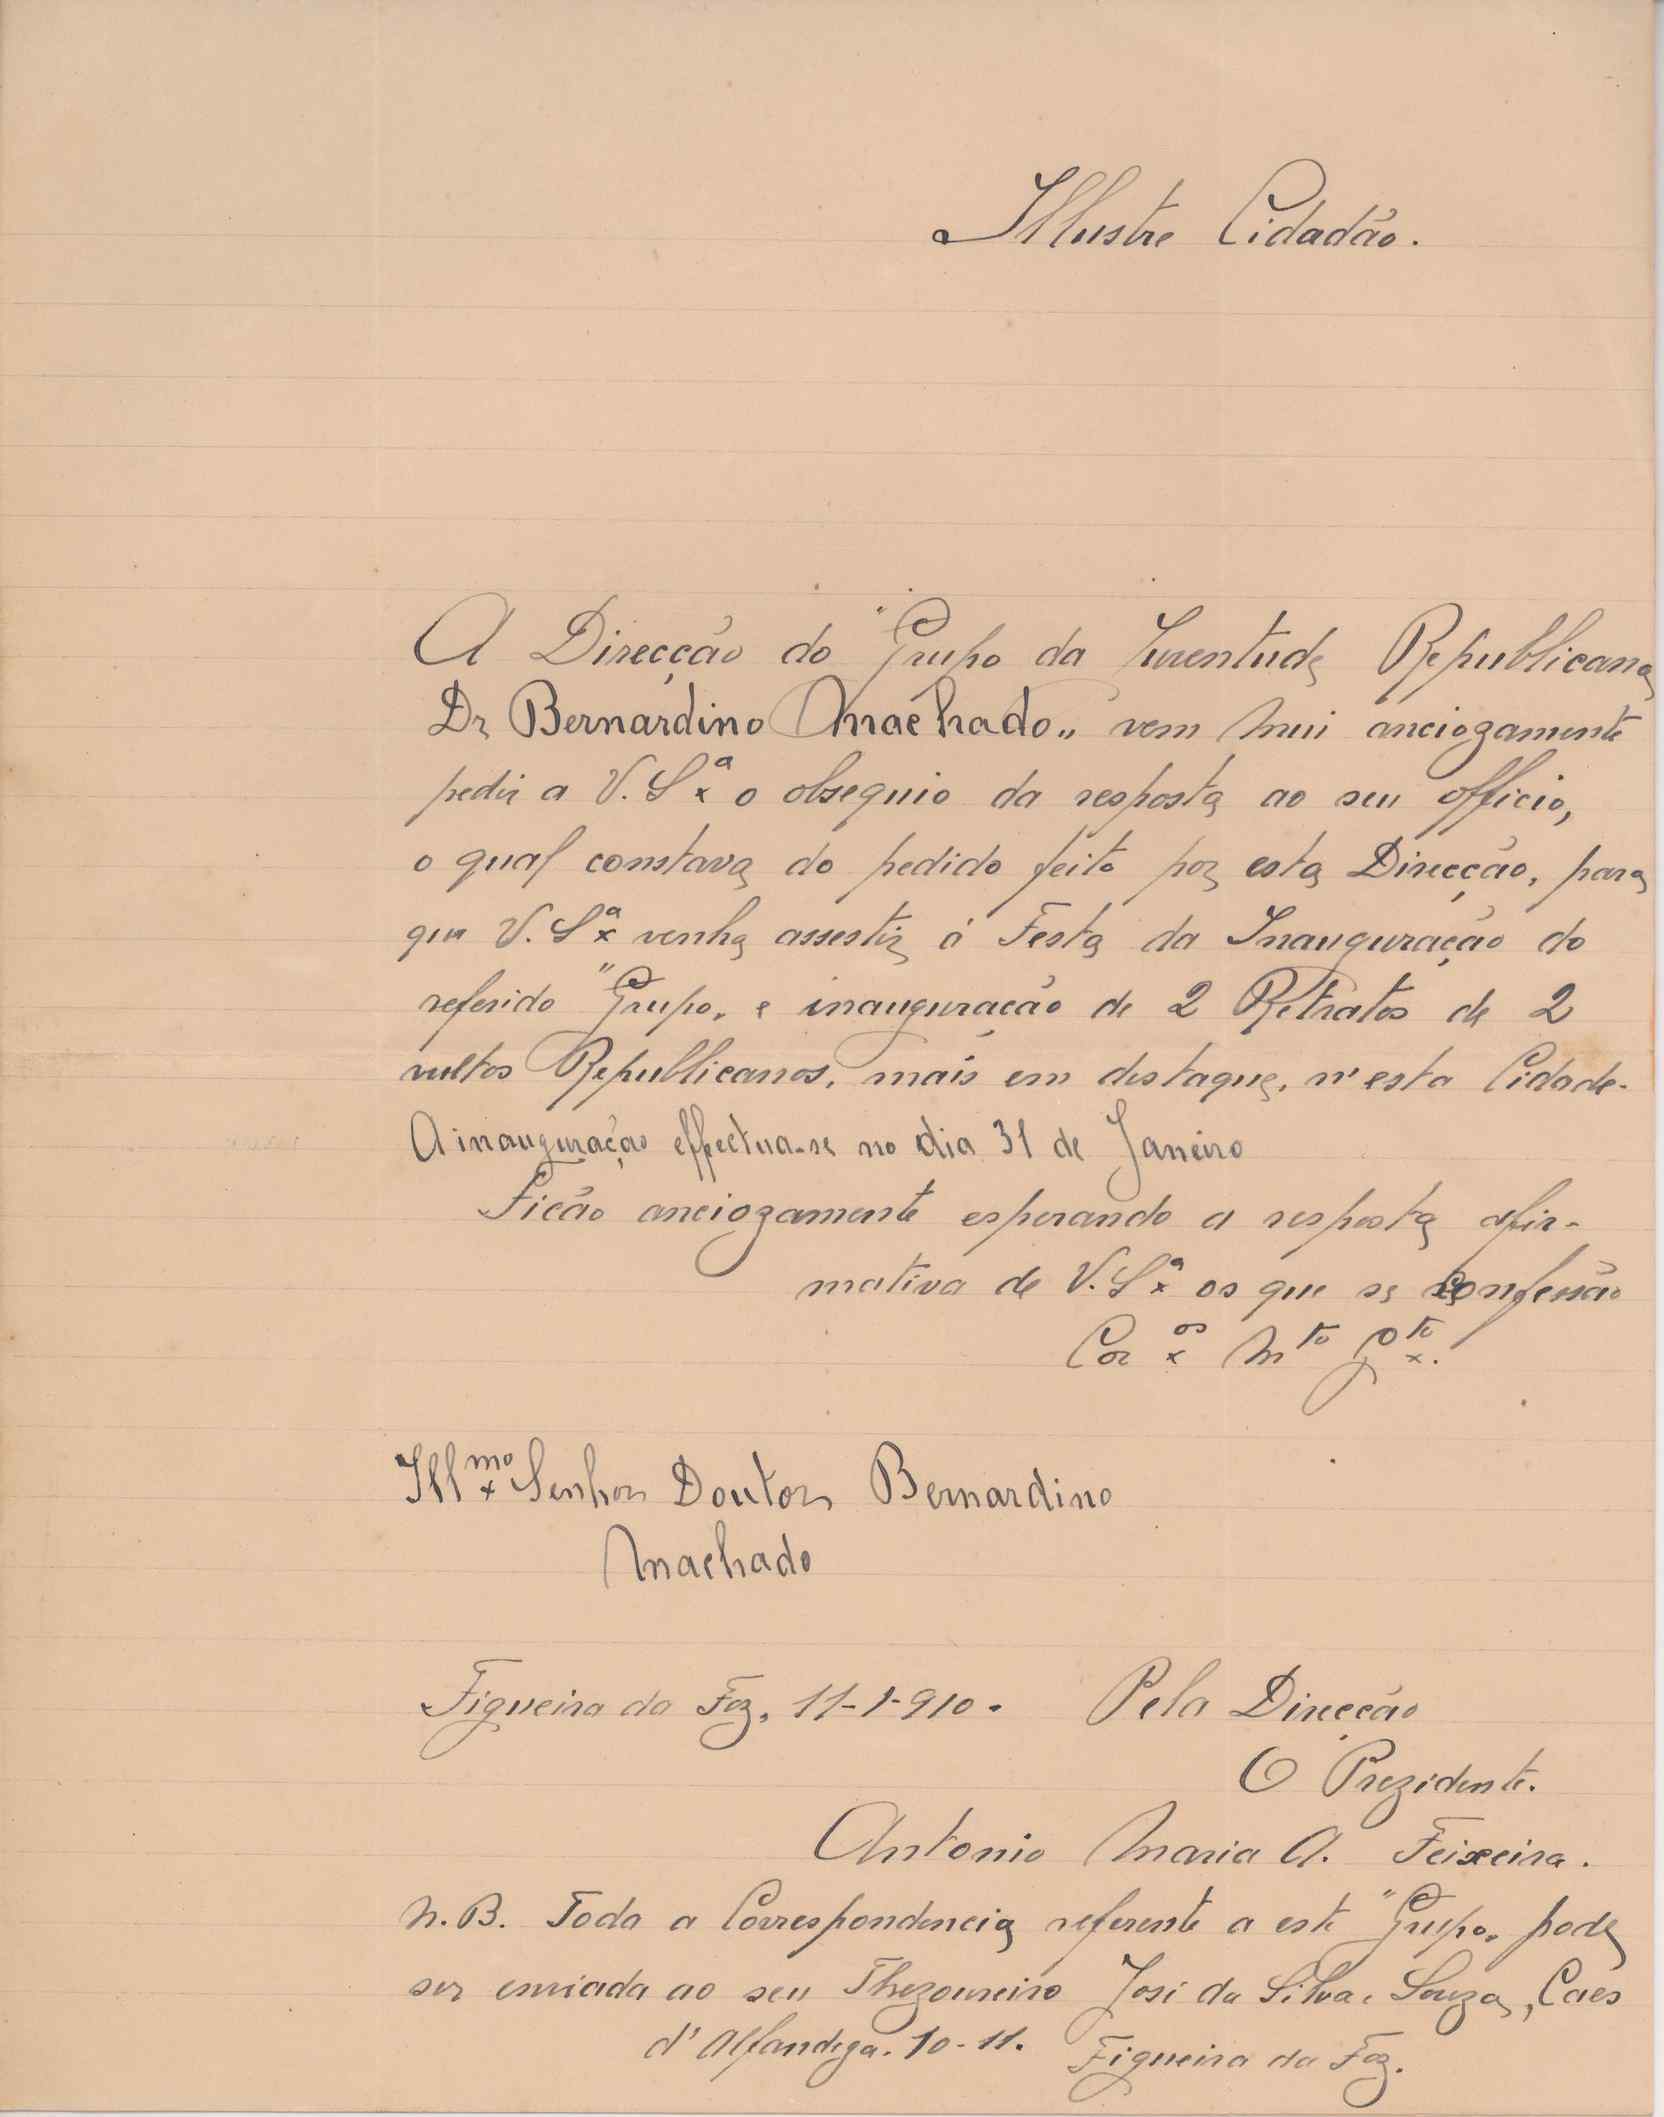 Illustre Cidadão.
A Direcção do "Grupo da Juventude Republicana
Dr Bernardino Machado„ vem mui anciozamente
pedir a V. Sª o obsequio da resposta ao seu officio,
o qual constava do pedido feito por esta Direcção, para
que V. Sª venha assestir á Festa da Inauguração do
referido "Grupo„ e inauguração de 2 Retratos de 2
vultos Republicanos, mais em destaque, n'esta Cidade.
A inauguração effectua-se no dia 31 de Janeiro
Ficão anciozamente esperando a resposta afir-
mativa de V. Sª os que se confessão
Cor os Mto Gto.
Illmo Senhor Doutor Bernardino
Machado
Figueira da Foz, 11-1-910. Pela Direcção
O Prezidente.
Antonio Maria A. Teixeira.
N. B. Toda a Correspondencia referente a este "Grupo„ pode
ser enviada ao seu Thezoureiro José da Silva e Souza, Caes
d'Alfandega. 10-11. Figueira da Foz.